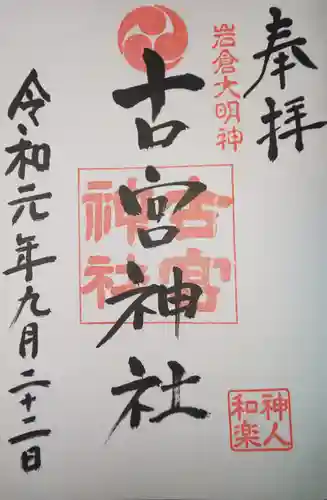 奉拝
岩倉大明神
古宮神社
古宮
神社
令和元年九月二十二日
神人
和楽